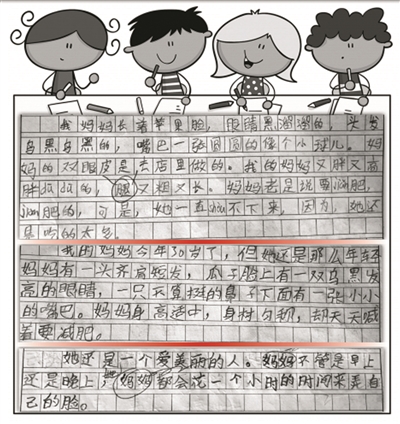 我妈妈长着苹果脸，眼睛黑溜溜的，头发
乌黑乌黑的，嘴巴一张圆圆的像个小球儿。妈
妈的双眼皮是去店里做的。我的妈妈又胖又高
胖的，腿又粗又长。妈妈老是说要jian肥，
jian肥的，可是，她一直jian不下来，因为，她还
是吃的太多
我的妈妈今年30岁了，但她还是那么年轻
妈妈有一头齐肩短发，瓜子脸上有一双乌黑发
亮的眼睛，一只不算挺的鼻子下面有一张小小
的嘴巴。妈妈身高适中，身材匀称，却天天喊
着要减肥。
她还是一个爱美丽的人。妈妈不管是早上
还是晚上，妈妈都会花一个小时的时间来弄自
己的脸。